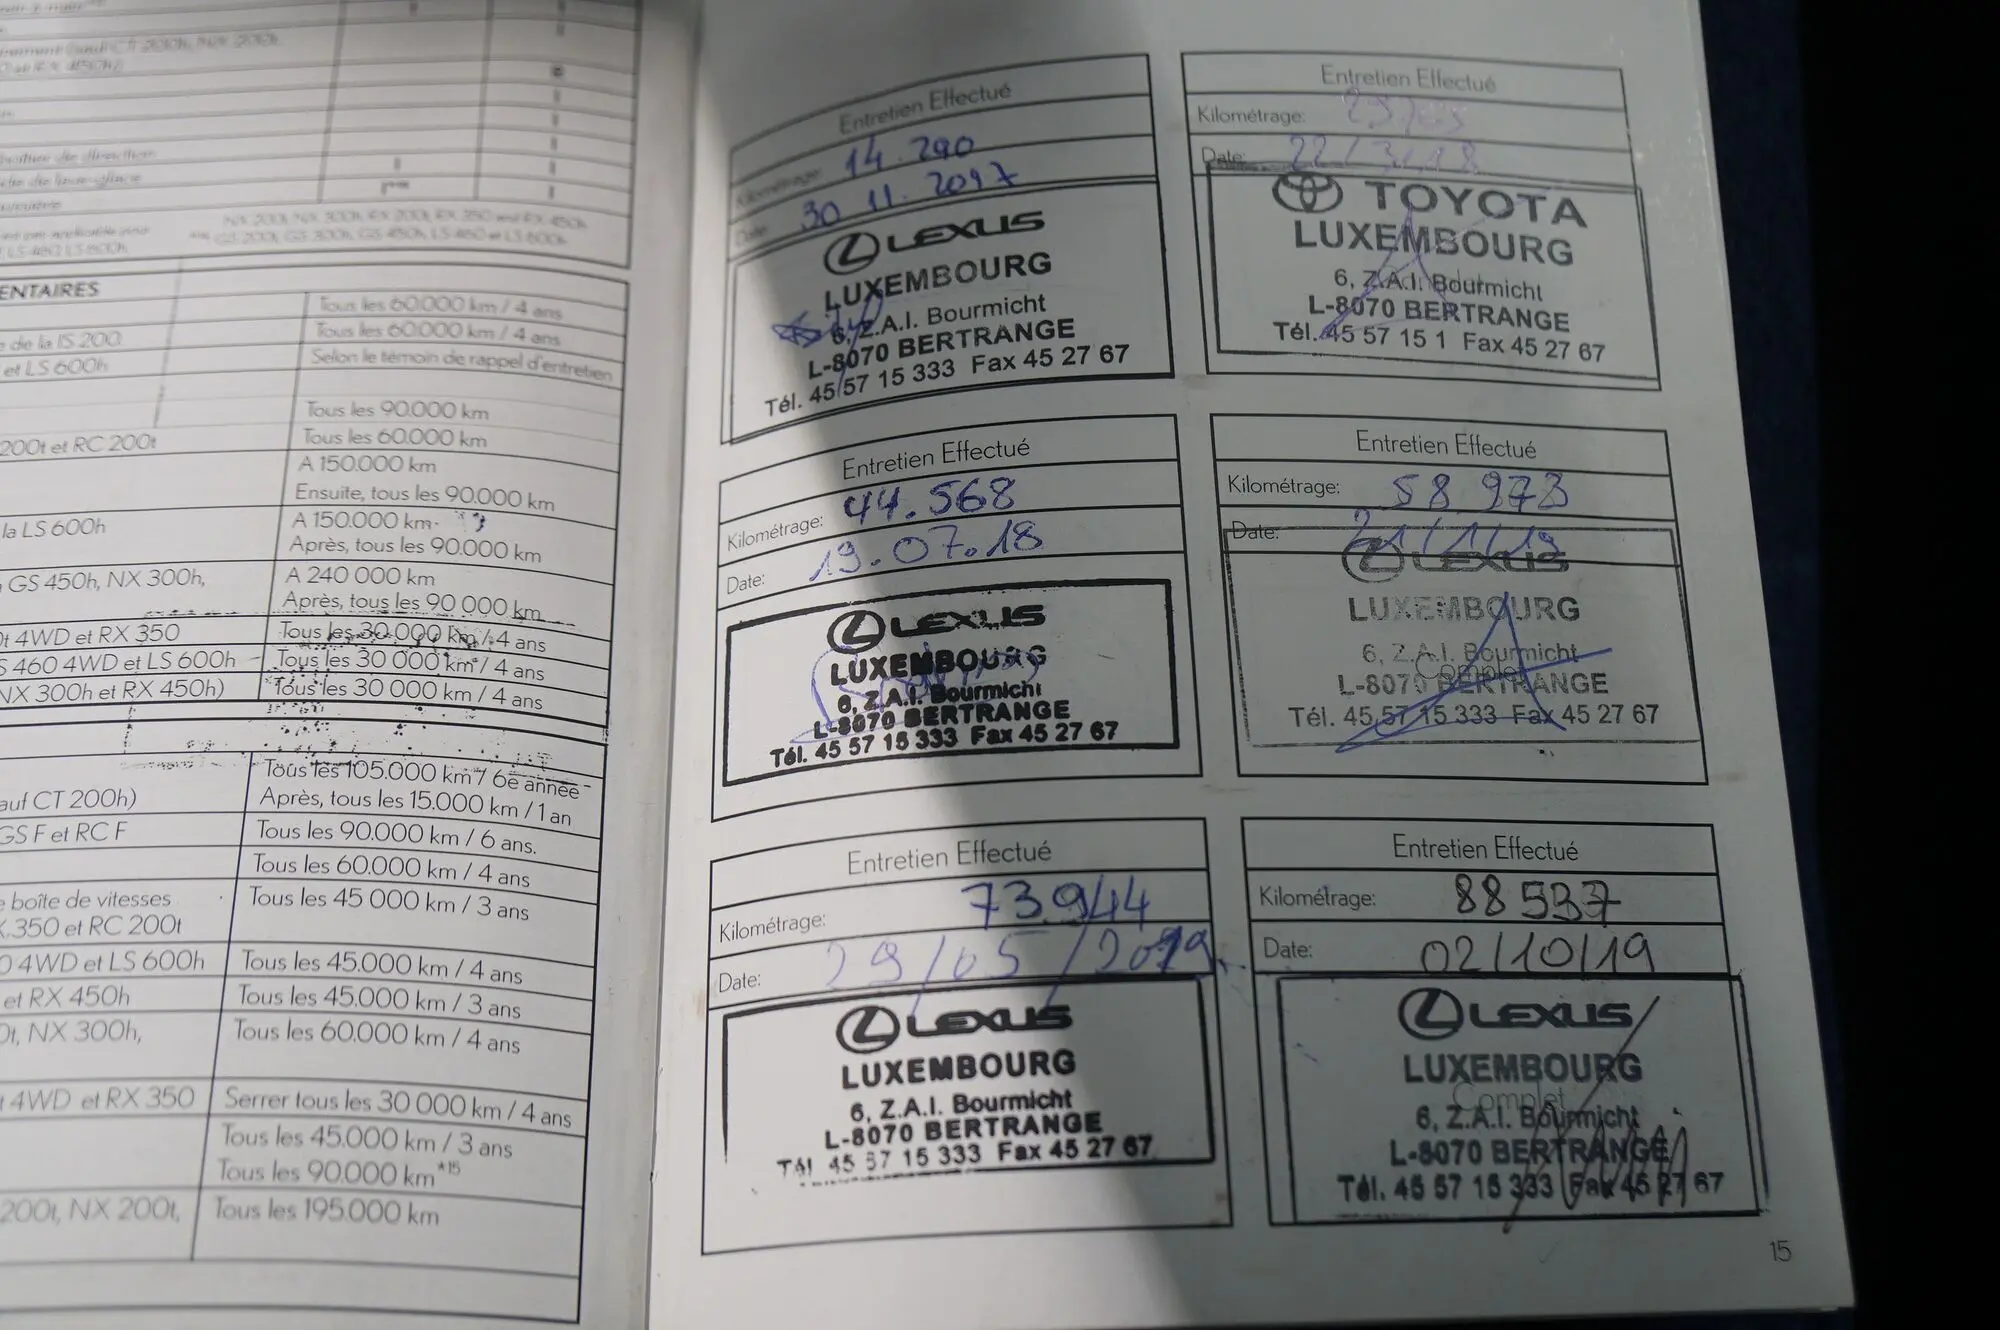 NX 200t, NX 300h, RX 200t, RX 350 and RX 450h.
GS 200t, GS 300h, GS 450h, LS 460 et LS 600h.
ENTAIRES
Tous les 60.000 km / 4 ans
e de la IS 200. Tous les 60.000 km / 4 ans
et LS 600h Selon le témoin de rappel d'entretien
Tous les 90.000 km
200t et RC 200t Tous les 60.000 km
A 150.000 km
Ensuite, tous les 90.000 km
la LS 600h A 150.000 km
Après, tous les 90.000 km
GS 450h, NX 300h, A 240 000 km
Après, tous les 90 000 km
0t 4WD et RX 350 Tous les 30 000 km / 4 ans
S 460 4WD et LS 600h Tous les 30 000 km / 4 ans
NX 300h et RX 450h) Tous les 30 000 km / 4 ans
Tous les 105.000 km / 6e année
auf CT 200h) Après, tous les 15.000 km / 1 an
GS F et RC F Tous les 90.000 km / 6 ans.
Tous les 60.000 km / 4 ans
e boîte de vitesses Tous les 45 000 km / 3 ans
X 350 et RC 200t
0 4WD et LS 600h Tous les 45.000 km / 4 ans
et RX 450h Tous les 45.000 km / 3 ans
0t, NX 300h, Tous les 60.000 km / 4 ans
t 4WD et RX 350 Serrer tous les 30 000 km / 4 ans
Tous les 45.000 km / 3 ans
Tous les 90.000 km*15
200t, NX 200t, Tous les 195.000 km
Entretien Effectué
Kilométrage: 14.290
Date: 30 11.2017
LEXUS
LUXEMBOURG
6, Z.A.I. Bourmicht
L-8070 BERTRANGE
Tél. 45 57 15 333 Fax 45 27 67
Entretien Effectué
Kilométrage:
Date: 22/3/18
TOYOTA
LUXEMBOURG
6, Z.A.I. Bourmicht
L-8070 BERTRANGE
Tél. 45 57 15 1 Fax 45 27 67
Entretien Effectué
Kilométrage: 44.568
Date: 19.07.18
LEXUS
LUXEMBOURG
6, Z.A.I. Bourmicht
L-8070 BERTRANGE
Tél. 45 57 15 333 Fax 45 27 67
Entretien Effectué
Kilométrage: 58 973
Date: 21/1/19
LEXUS
LUXEMBOURG
6, Z.A.I. Bourmicht
Complet
L-8070 BERTRANGE
Tél. 45 57 15 333 Fax 45 27 67
Entretien Effectué
Kilométrage: 73944
Date: 29/05/2019
LEXUS
LUXEMBOURG
6, Z.A.I. Bourmicht
L-8070 BERTRANGE
Tél 45 57 15 333 Fax 45 27 67
Entretien Effectué
Kilométrage: 88537
Date: 02/10/19
LEXUS
LUXEMBOURG
Complet
6, Z.A.I. Bourmicht
L-8070 BERTRANGE
Tél. 45 57 15 333 Fax 45 27 67
15